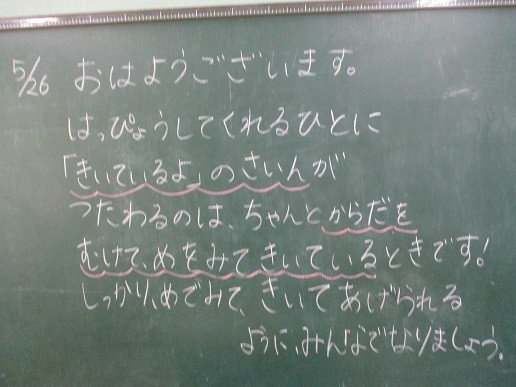 5/26 おはようございます。
はっぴょうしてくれるひとに
「きいているよ」のさいんが
つたわるのは、ちゃんとからだを
むけて、めをみてきいているときです!
しっかり、めでみて、きいてあげられる
ように、みんなでなりましょう。